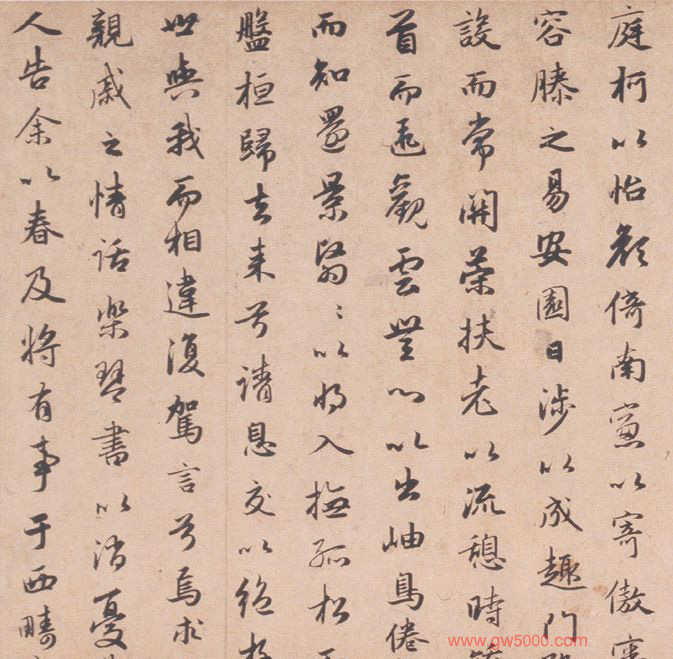 庭柯以怡顏倚南窓以寄傲審
容膝之易安園日涉以成趣門
設而常開策扶老以流憩時
首而遐觀雲無心以出岫鳥倦
而知還景翳〻以將入撫孤松而
盤桓歸去来兮請息交以絶
世與我而相違復駕言兮焉求
親戚之情話樂琴書以消憂
人告余以春及將有事于西疇
www.gw5000.com